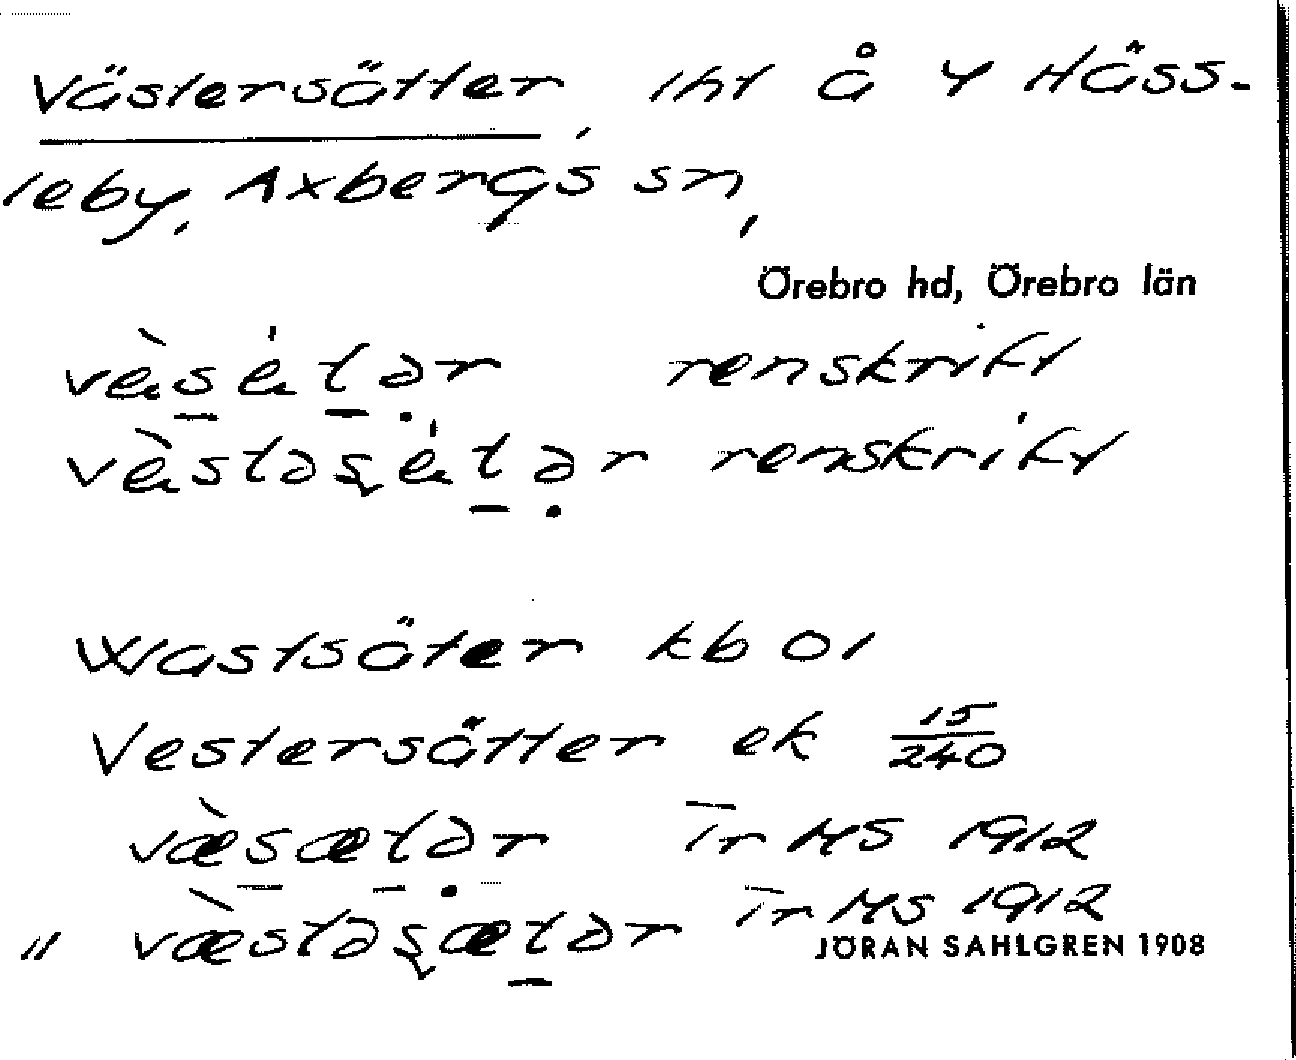 Västersätter, lht å Y Häss-
leby, Axbergs sn,
Örebro hd, Örebro län
renskrift
renskrift
Wastsäter kb 01
Vestersätter ek 15/240
væ̀sætər ir MS 1912
" væ̀stəsætər ir MS 1912
JÖRAN SAHLGREN 1908